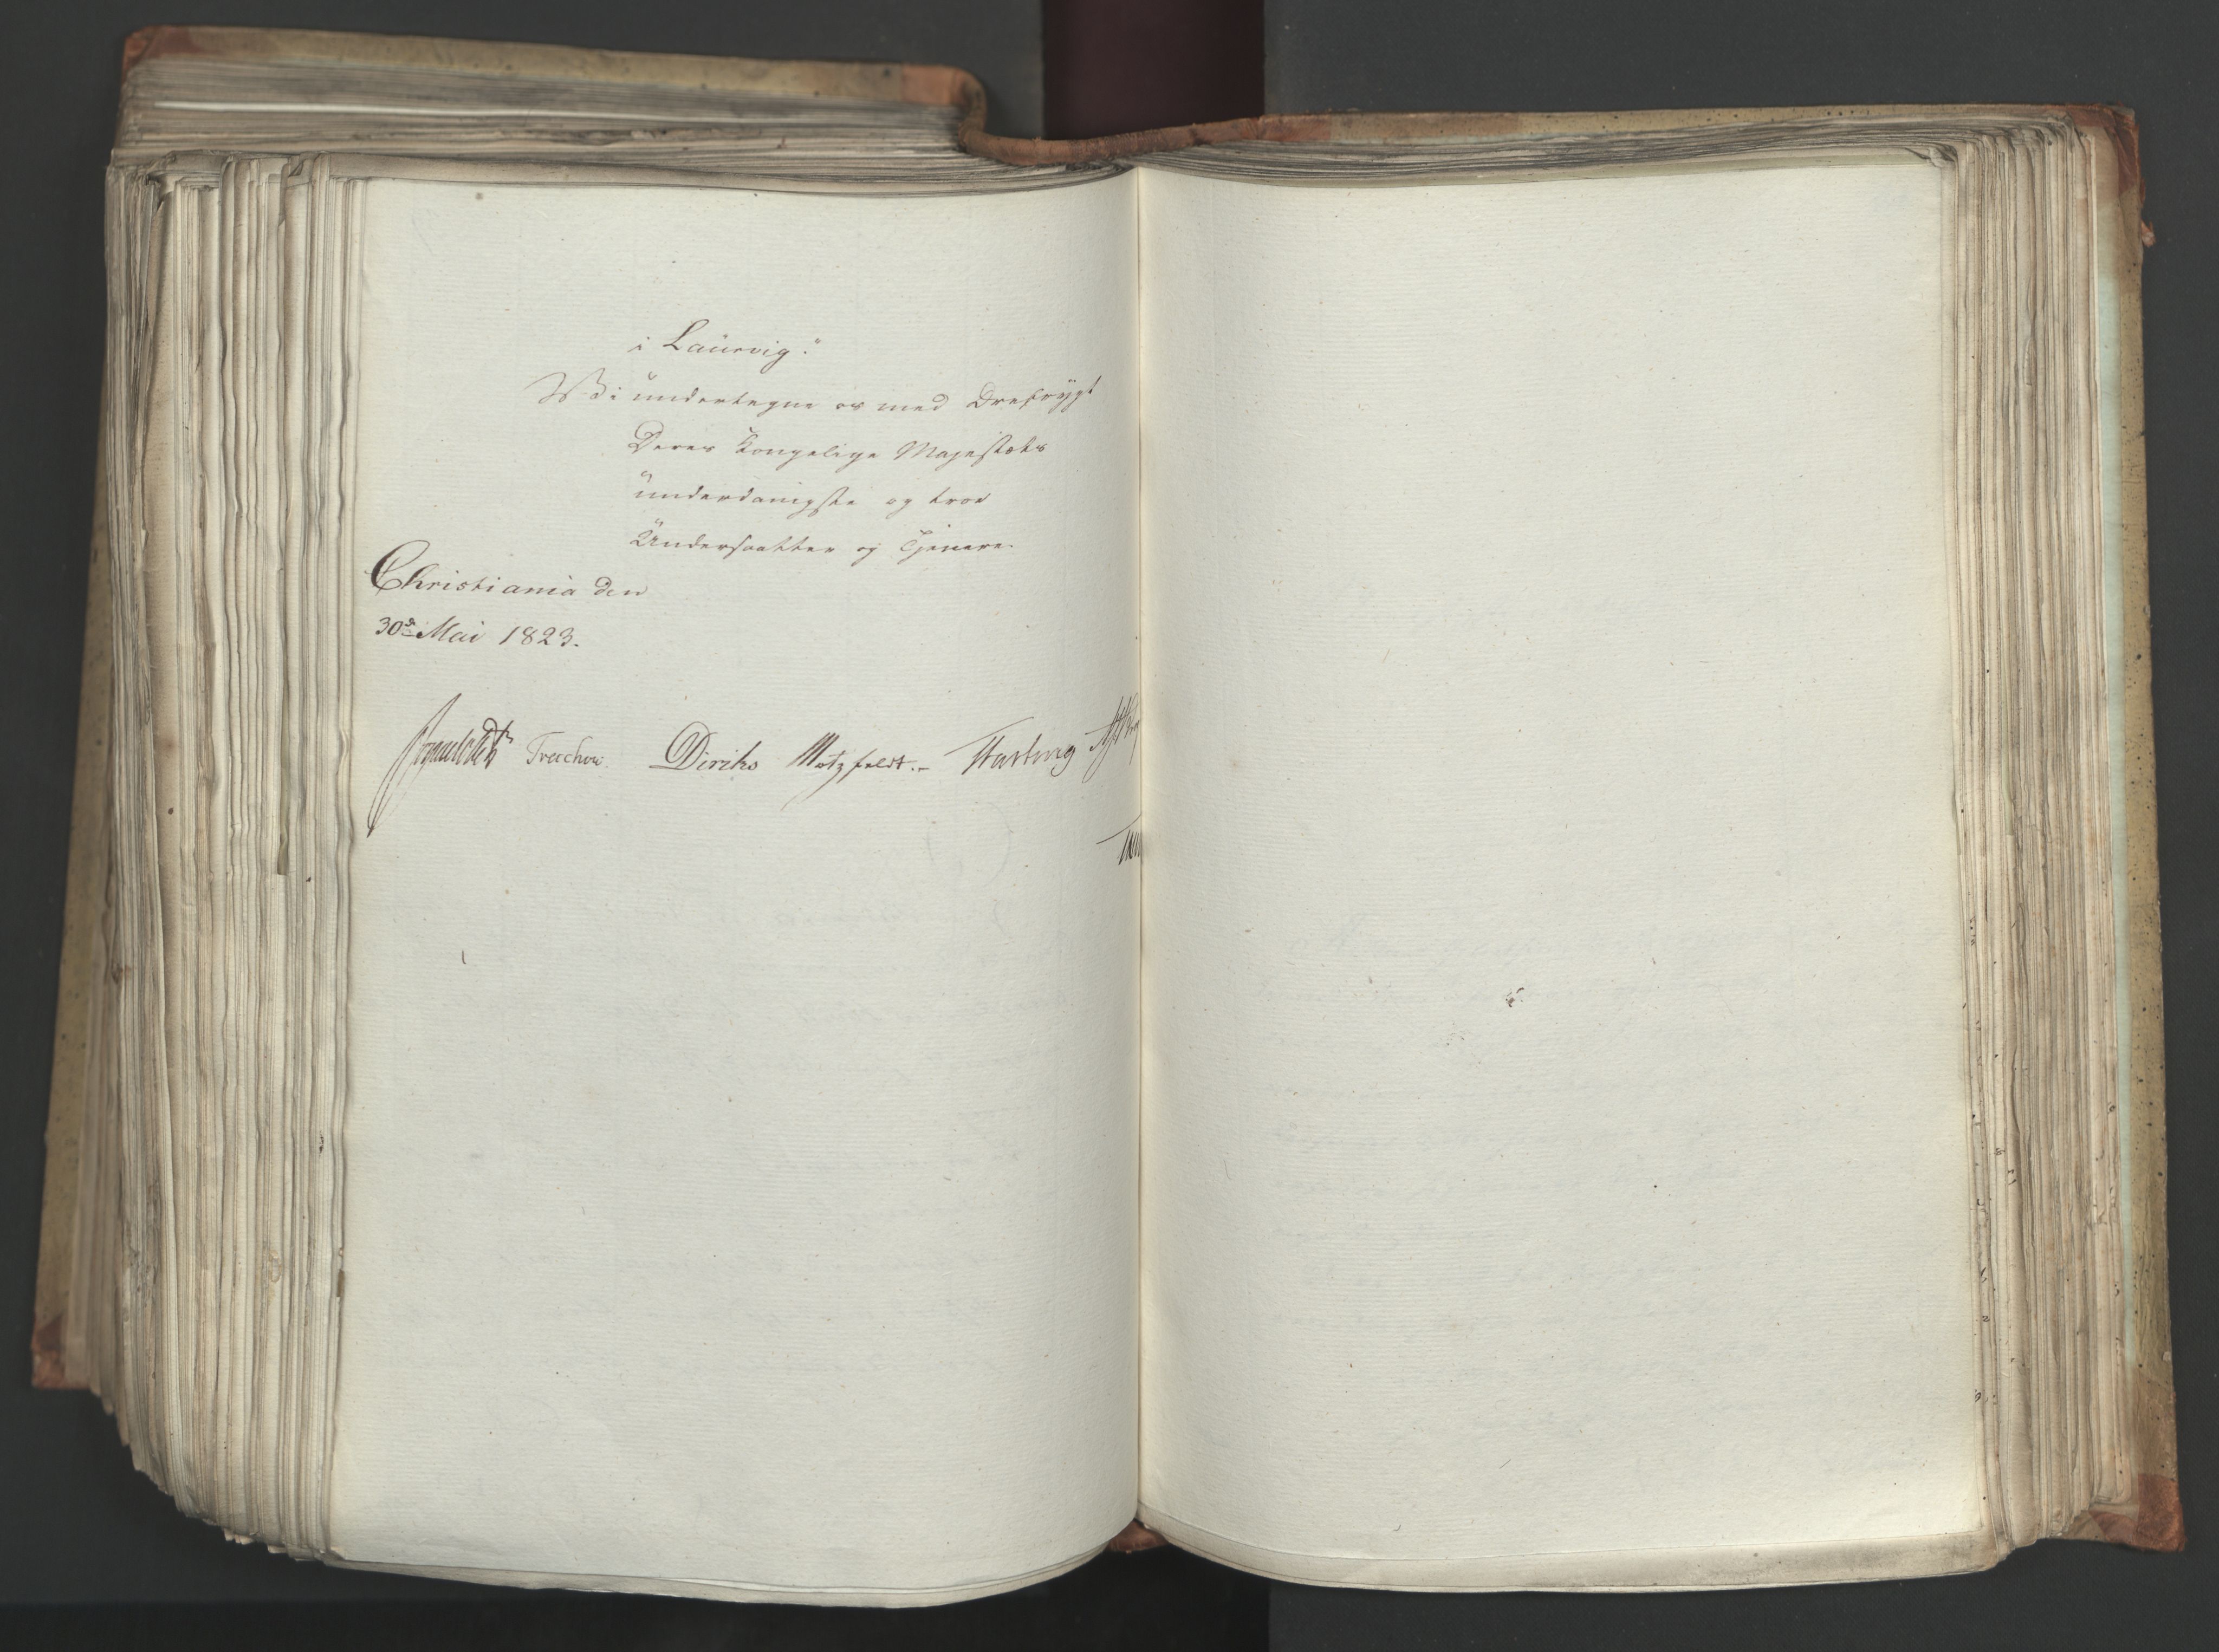 i Laurvig."
Vi undertegne os med Ærefrygt
Deres Kongelige Majestæts
underdanigste og troe
Undersaatter og Tjenere.
Christiania den
30de Mai 1823.
Sommerhielm Treschow. Diriks Motzfeldt.- Fasting